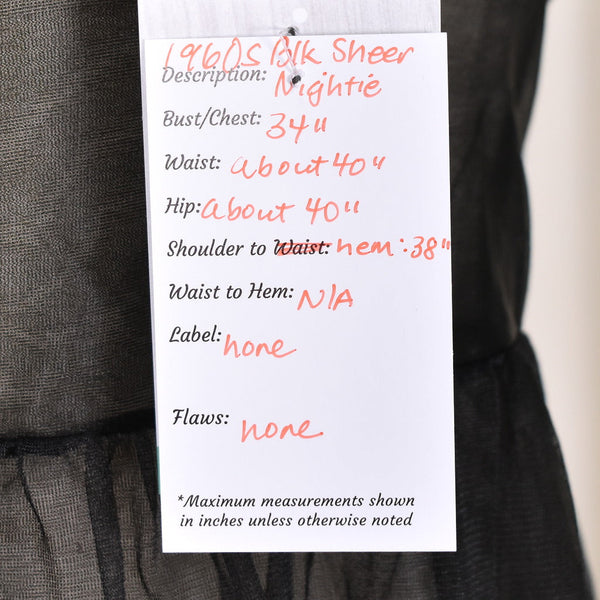 1960s Blk Sheer
Description: Nightie
Bust/Chest: 34"
Waist: about 40"
Hip: about 40"
Shoulder to Waist: hem: 38"
Waist to Hem: N/A
Label: none
Flaws: none
*Maximum measurements shown
in inches unless otherwise noted